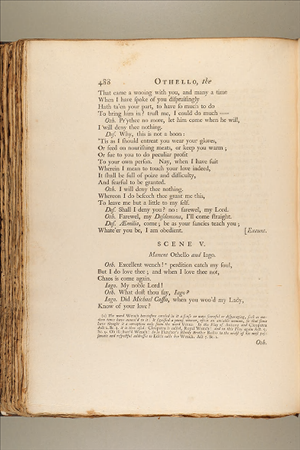 488 OTHELLO, the
That came a wooing with you, and many a time
When I have spoke of you dispraisingly
Hath ta'en your part, to have so much to do
To bring him in? trust me, I could do much —
Oth. Pr'ythee no more, let him come when he will,
I will deny thee nothing.
Des. Why, this is not a boon:
'Tis as I should entreat you wear your gloves,
Or feed on nourishing meats, or keep you warm;
Or sue to you to do peculiar profit
To your own person. Nay, when I have suit
Wherein I mean to touch your love indeed,
It shall be full of poize and difficulty,
And fearful to be granted.
Oth. I will deny thee nothing.
Whereon I do beseech thee grant me this,
To leave me but a little to my self.
Des. Shall I deny you? no: farewel, my Lord.
Oth. Farewel, my Desdemona, I'll come straight.
Des. Æmilia, come; be as your fancies teach you;
Whate'er you be, I am obedient. [Exeunt.
SCENE V.
Manent Othello and Iago.
Oth. Excellent wench! perdition catch my soul,
But I do love thee; and when I love thee not,
Chaos is come again.
Iago. My noble Lord!
Oth. What dost thou say, Iago?
Iago. Did Michael Cassio, when you woo'd my Lady,
Know of your love?
Oth.